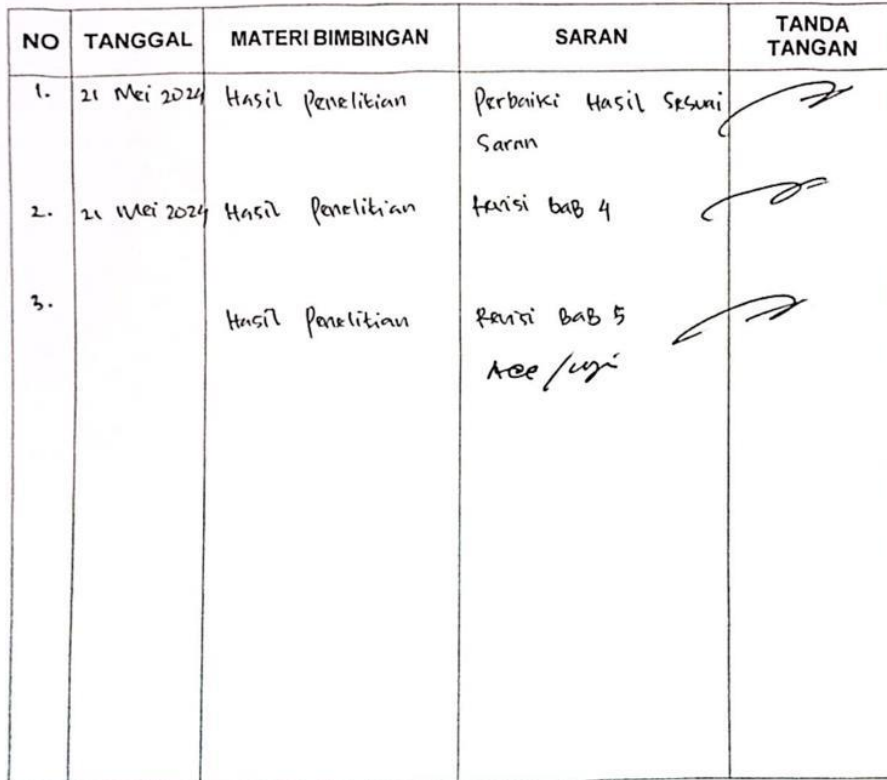 NO TANGGAL MATERI BIMBINGAN SARAN TANDA TANGAN
1. 21 Mei 2024 Hasil Penelitian Perbaiki Hasil Sesuai
Saran
2. 21 Mei 2024 Hasil Penelitian Revisi bab 4
3.
Hasil Penelitian Revisi BaB 5
Acc /uji